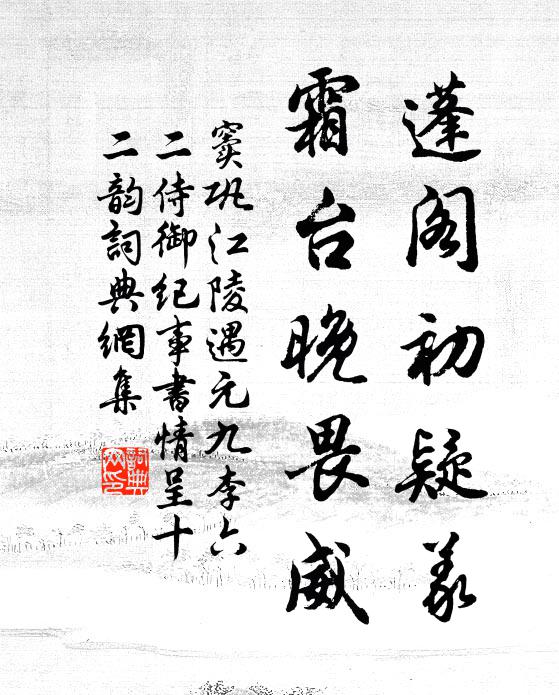 蓬阁初疑义
霜台晚畏威
窦巩江陵遇元九李六
二侍御纪事书情呈十
二韵词典網集